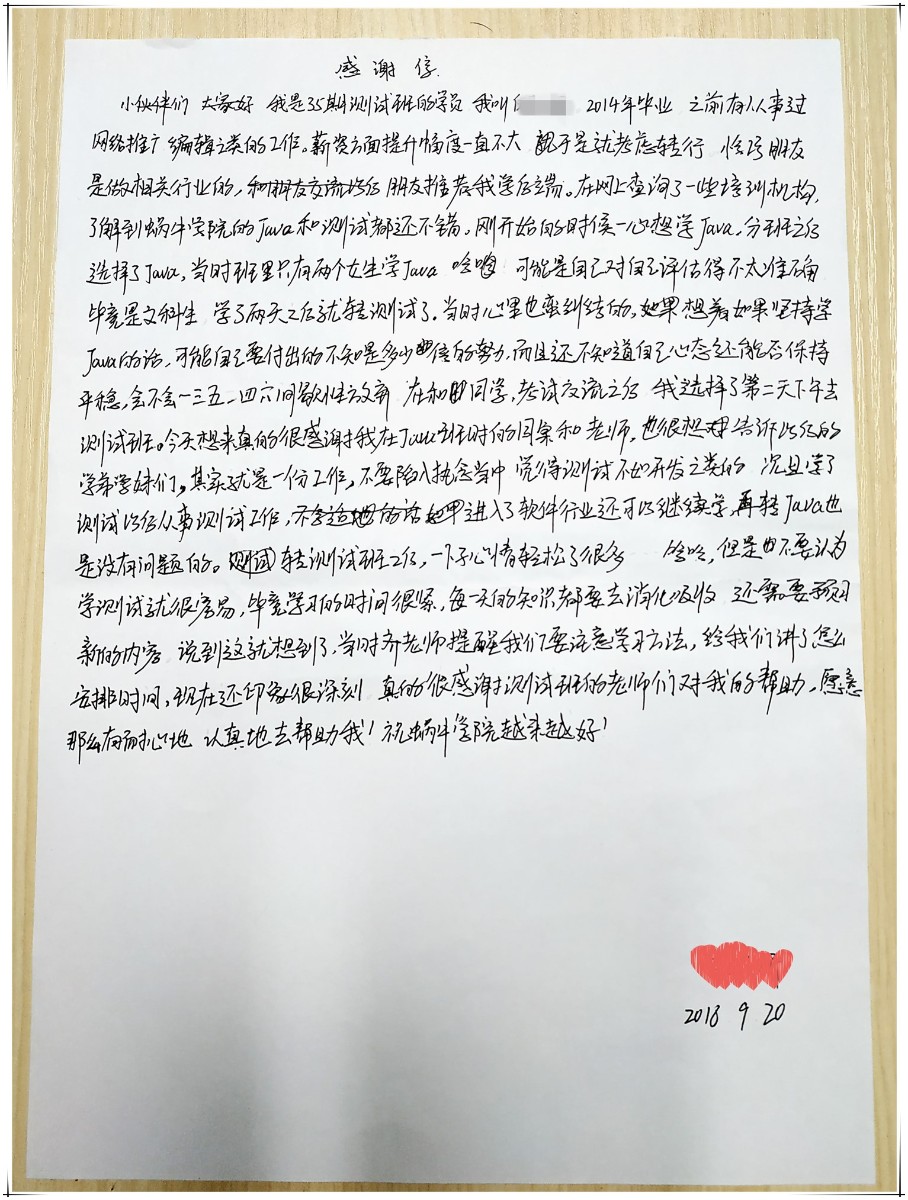 感谢信
小伙伴们 大家好 我是35期测试班的学员 我叫 2014年毕业 之前有从事过
网络推广 编辑之类的工作。薪资方面提升幅度一直不大 于是就考虑转行 恰巧朋友
是做相关行业的,和朋友交流以后 朋友推荐我学后端。在网上查询了一些培训机构,
了解到蜗牛学院的Java和测试都还不错。刚开始的时候一心想学Java,分班之后
选择了Java,当时班里只有两个女生学Java 哈哈 可能是自己对自己评估得不太准确
毕竟是文科生 学了两天之后就转测试了。当时心里也蛮纠结的, 想着如果坚持学
Java的话,可能自己要付出的不知是多少倍的努力,而且还不知道自己心态还能否保持
平稳,会不会一三五、二四六间歇性放弃 在和同学,老师交流之后 我选择了第二天下午去
测试班。今天想来真的很感谢我在Java班时的同桌和老师,也很想告诉以后的
学弟学妹们,其实就是一份工作,不要陷入执念当中 觉得测试不如开发之类的 况且学了
测试以后从事测试工作, 进入了软件行业还可以继续学,再转Java也
是没有问题的。 转测试班之后,一下子心情轻松了很多 哈哈,但是也不要认为
学测试就很容易,毕竟学习的时间很紧,每一天的知识都要去消化吸收 还需要预习
新的内容 说到这就想到了,当时齐老师提醒我们要注意学习方法,给我们讲了怎么
安排时间,现在还印象很深刻 真的很感谢测试班的老师们对我的帮助,愿意
那么有耐心地 认真地去帮助我!祝蜗牛学院越来越好!
2018 9 20